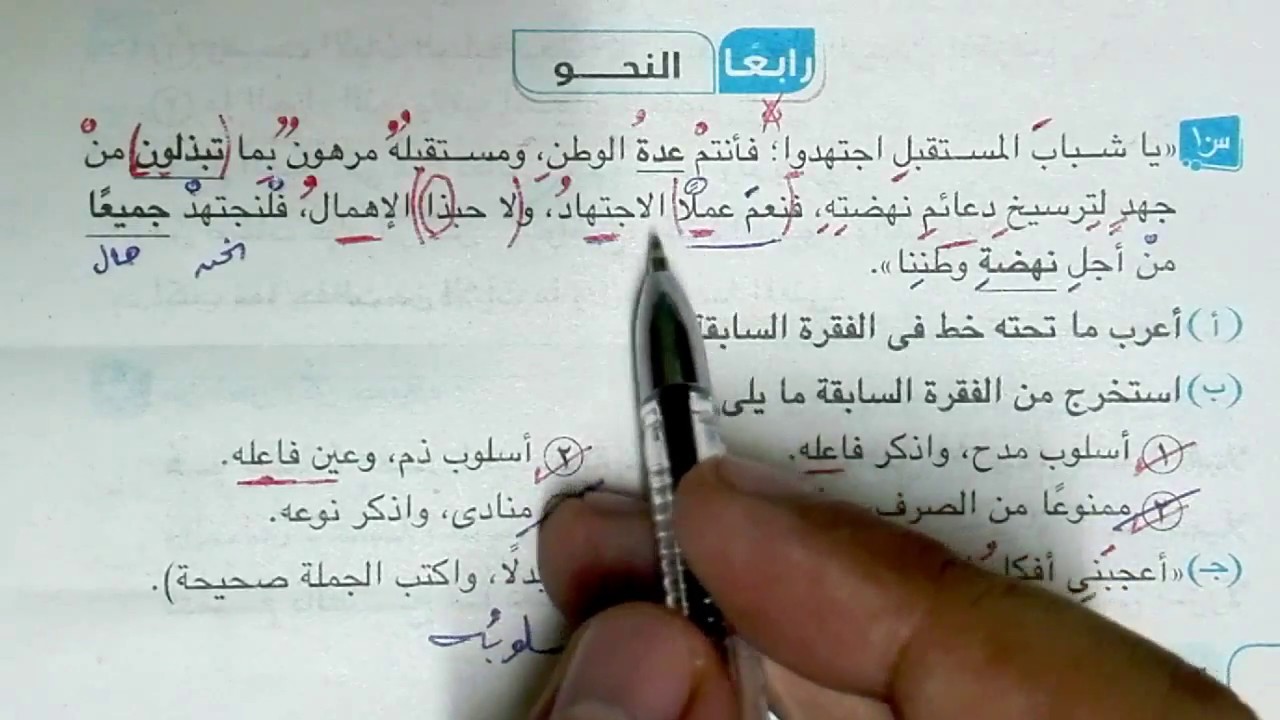 رابعًا النحـــو
س١ «يا شـبابَ المسـتقبلِ اجتهدوا؛ فأنتمْ عدةُ الوطنِ، ومسـتقبلُهُ مرهونٌ بِما تبذلونِ منْ
جهدٍ لِترسيخِ دعائمِ نهضتِهِ، فَنعمَ عملًا الاجتهادُ، ولا حبذا الإهمالُ، فلْنجتهدْ جميعًا
حال
منْ أجلِ نهضةِ وطنِنا».
(أ) أعرب ما تحته خط فى الفقرة السابقة
(ب) استخرج من الفقرة السابقة ما يلى
١ أسلوب مدح، واذكر فاعله. ٢ أسلوب ذم، وعين فاعله.
٣ ممنوعًا من الصرف منادى، واذكر نوعه.
(جـ) «أعجبَنِى بدلًا، واكتب الجملة صحيحة).